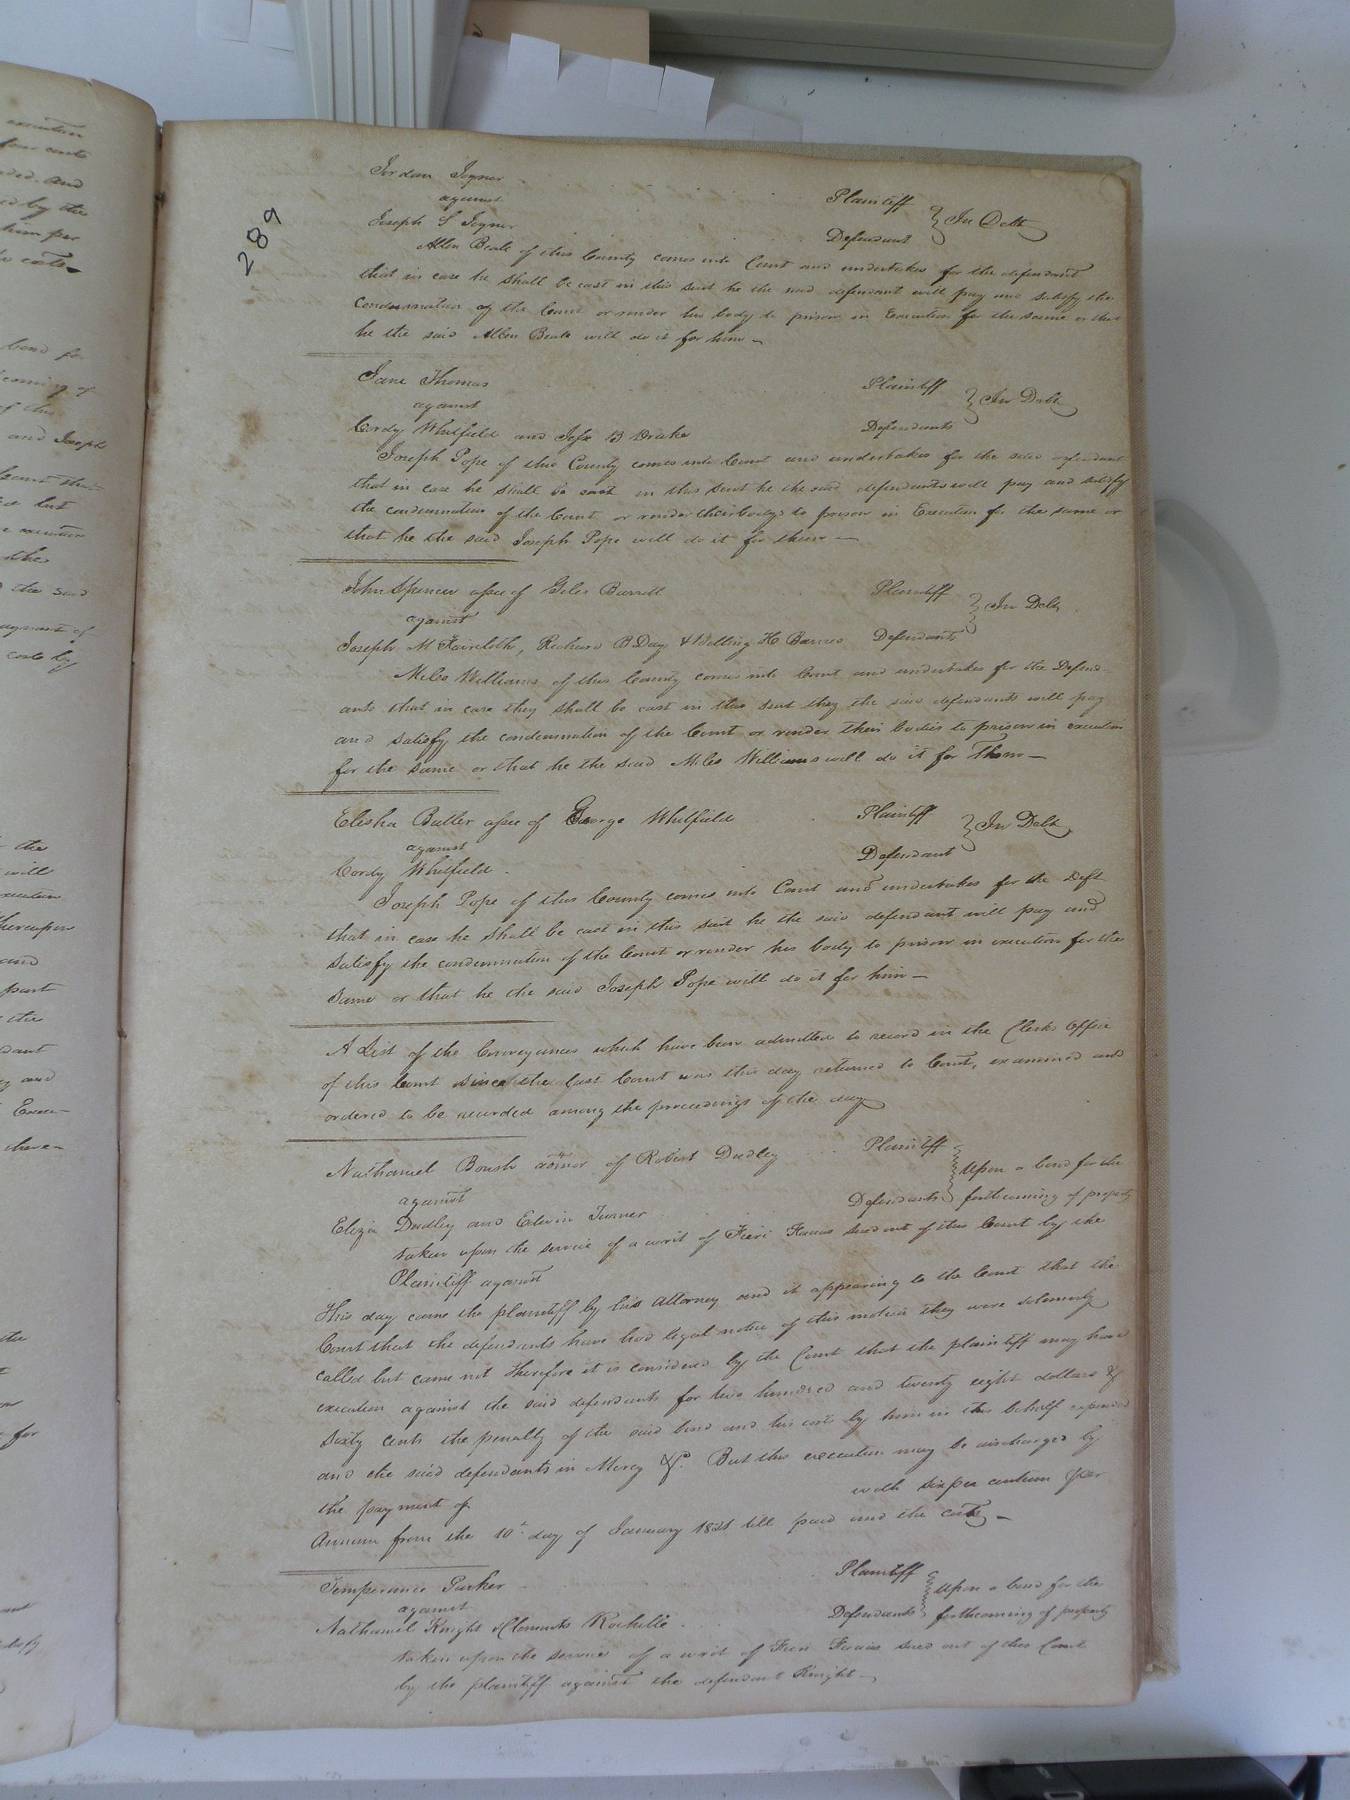 289
Jordan Joyner Plaintiff
against } In Debt
Joseph S Joyner Defendant
Allen Beale of this County comes into Court and undertakes for the defendant
that in case he shall be cast in this suit he the said defendant will pay and satisfy the
condemnation of the Court or render his body to prison in Execution for the same or that
he the said Allen Beale will do it for him —
Jane Thomas Plaintiff
against } In Debt
Cordy Whitfield and Jesse B Drake Defendants
Joseph Pope of this County comes into Court and undertakes for the said defendant
that in case he shall be cast in this suit he the said defendants will pay and satisfy
the condemnation of the Court or render their bodys to prison in Execution for the same or
that he the said Joseph Pope will do it for them —
John Spencer assee of Giles Burrell Plaintiff
against } In Debt
Joseph M Faircloth, Richard B Day & Willing H Barnes Defendants
Miles Williams of this County comes into Court and undertakes for the Defend-
ants that in case they shall be cast in this suit they the said defendants will pay
and satisfy the condemnation of the Court or render their bodies to prison in execution
for the same or that he the said Miles Williams will do it for them —
Elisha Butler assee of George Whitfield Plaintiff
against } In Debt
Cordy Whitfield Defendant
Joseph Pope of this County comes into Court and undertakes for the Deft
that in case he shall be cast in this suit he the said defendant will pay and
satisfy the condemnation of the Court or render his body to prison in execution for the
same or that he the said Joseph Pope will do it for him —
A List of the Conveyances which have been admitted to record in the Clerks Office
of this Court since the last Court was this day returned to Court, examined and
ordered to be recorded among the proceedings of the day
Nathaniel Boush admor of Robert Dudley Plaintiff
against } Upon a bond for the
Eliza Dudley and Edwin Turner Defendants forthcoming of property
taken upon the service of a writ of Fieri Facias sued out of this Court by the
Plaintiff against
This day came the plaintiff by his Attorney and it appearing to the Court that the
Court that the defendants have had legal notice of this motion they were solemnly
called but came not therefore it is considered by the Court that the plaintiff may have
execution against the said defendants for two hundred and twenty eight dollars &
sixty cents the penalty of the said bond and his costs by him in this behalf expended
and the said defendants in Mercy &c. But this execution may be discharged by
the payment of with six per centum per
Annum from the 10th day of January 1821 till paid and the costs —
Temperance Parker Plaintiff
against } Upon a bond for the
Nathaniel Knight & Clements Rochelle Defendants forthcoming of property
taken upon the service of a writ of Fieri Facias sued out of this Court
by the plaintiff against the defendant Knight —